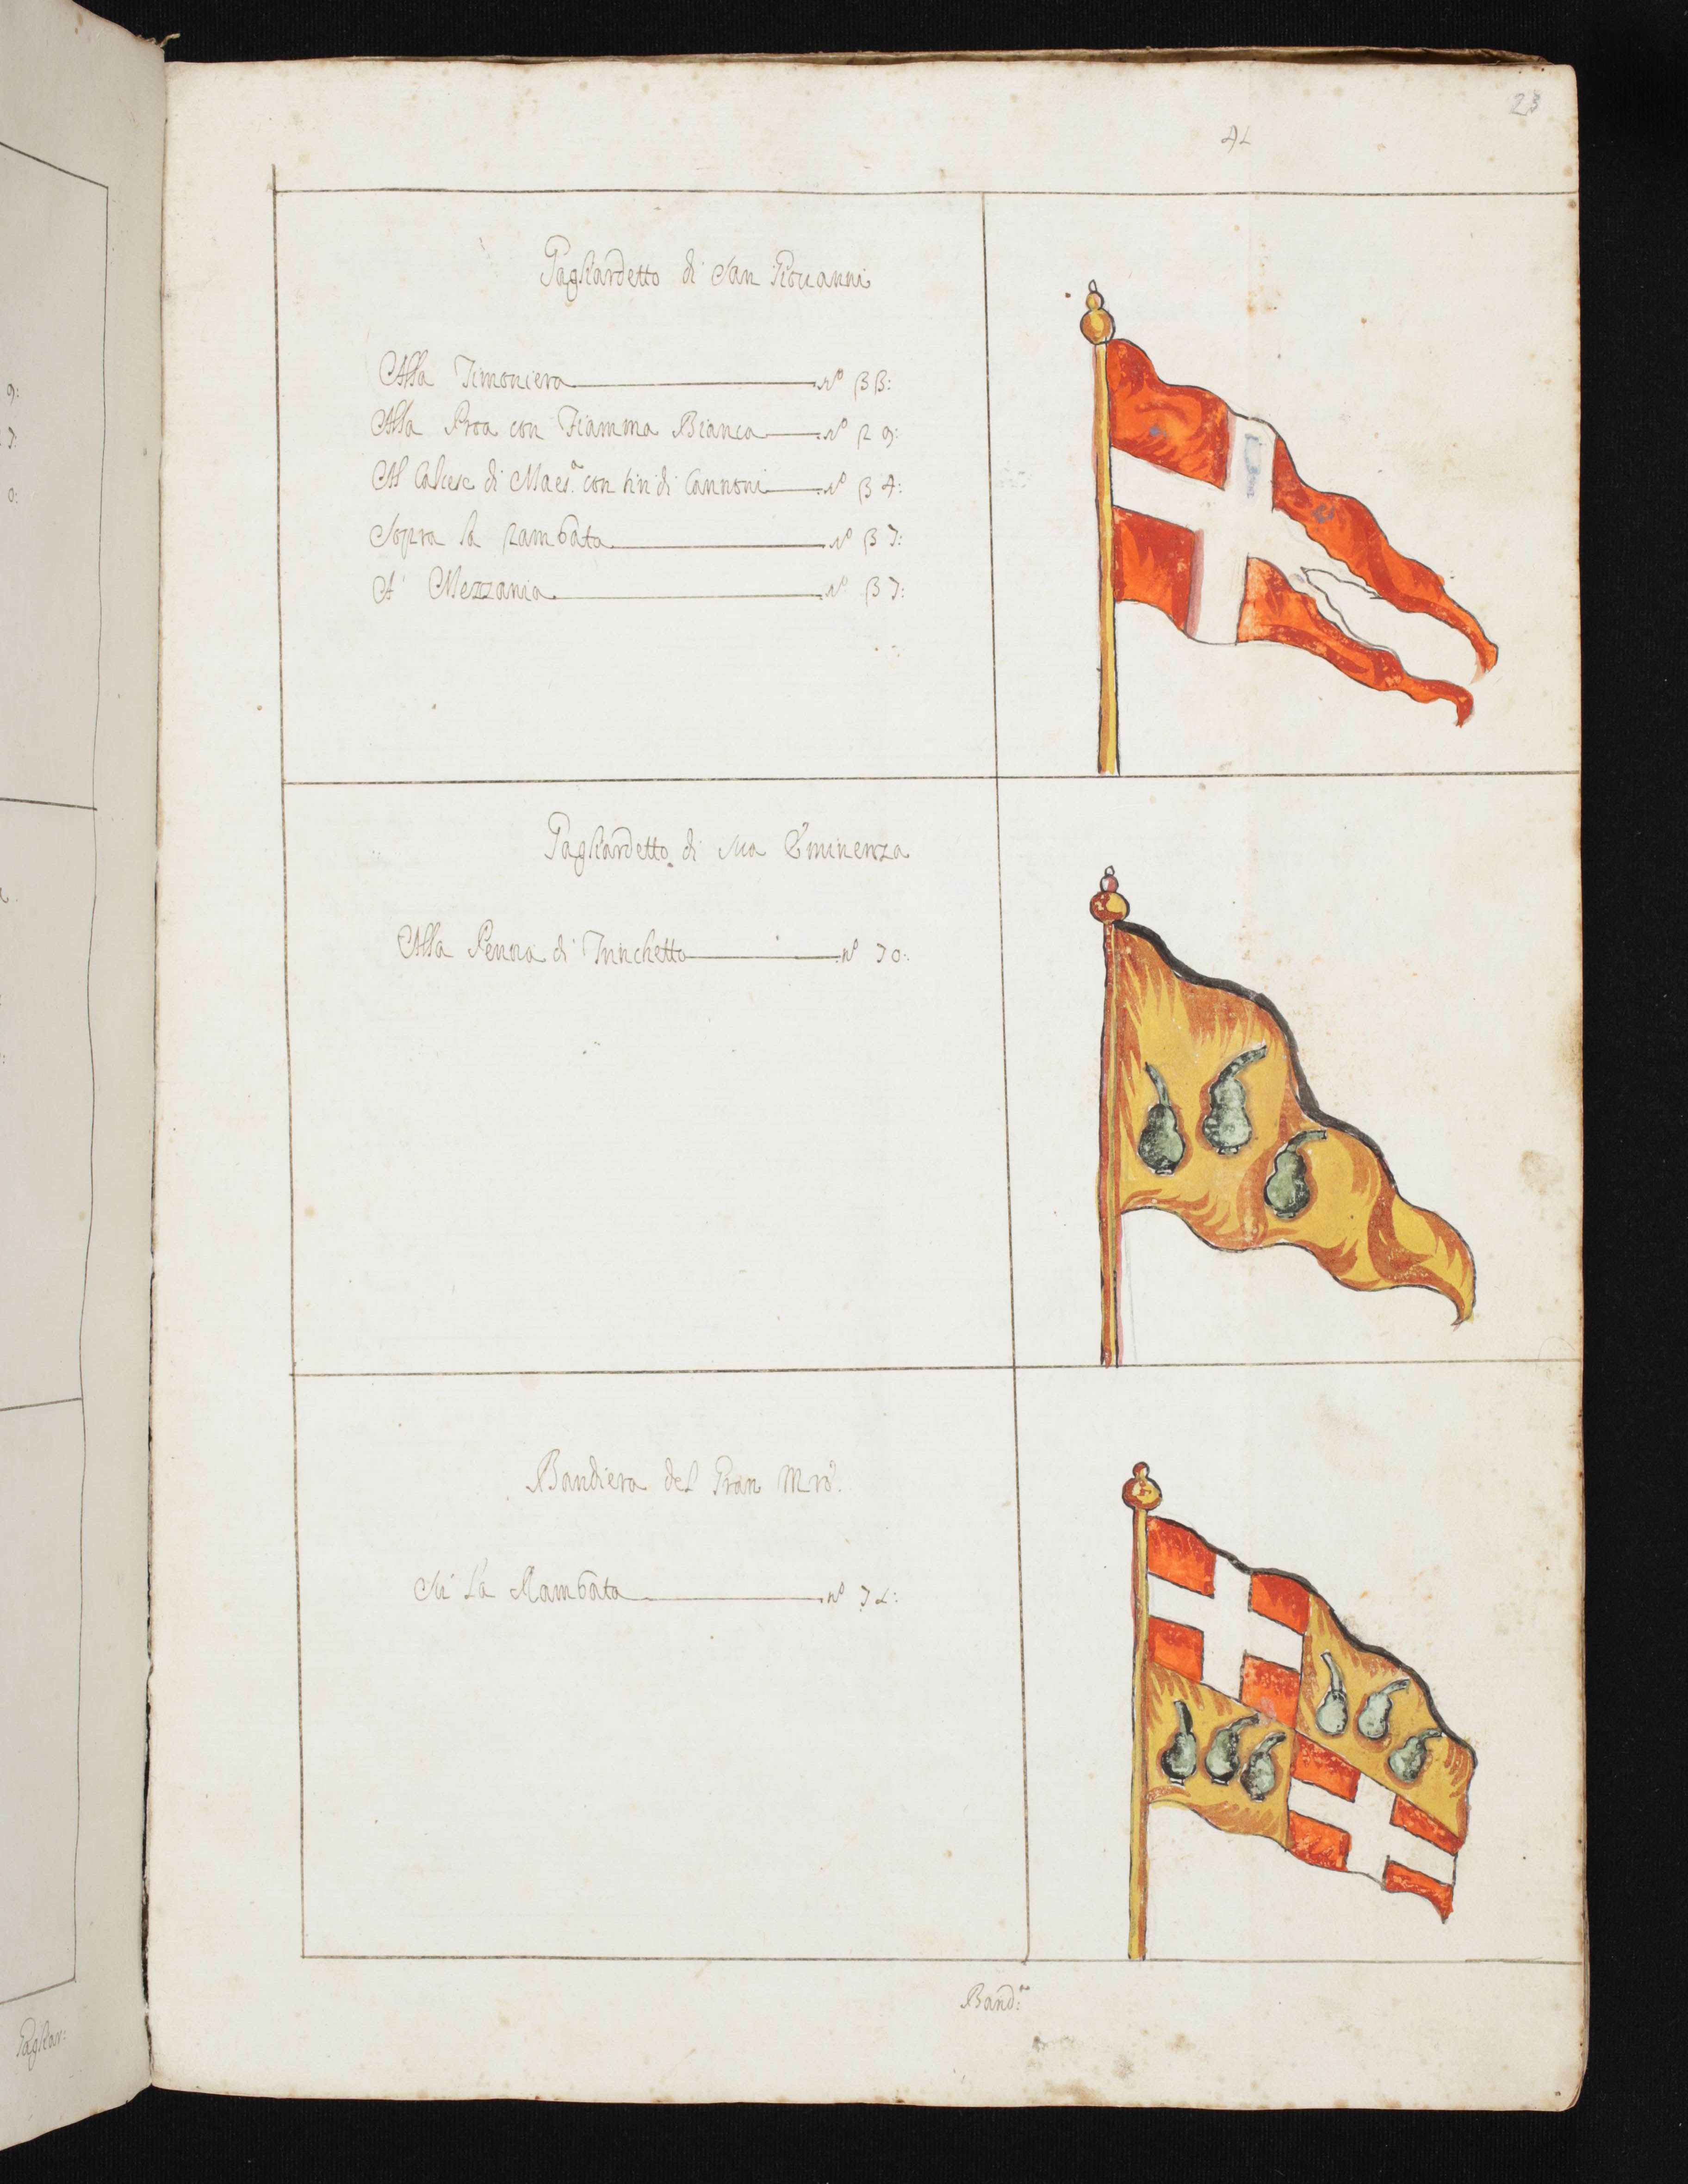 23
41
Pagliardetto di San Giouanni
Alla Timoniera n.º 33:
Alla Proa con Fiamma Bianca n.º 29:
Al Calcese di Maes.ª con tiri di Cannoni n.º 34:
Sopra la rambata n.º 37:
A Mezzania n.º 37:
Pagliardetto di Sua Eminenza
Alla Penna di Trinchetto n.º 70:
Bandiera del Gran Mrõ.
Su La Rambata n.º 71:
Band:ª
9:
7:
0:
Pagliar: